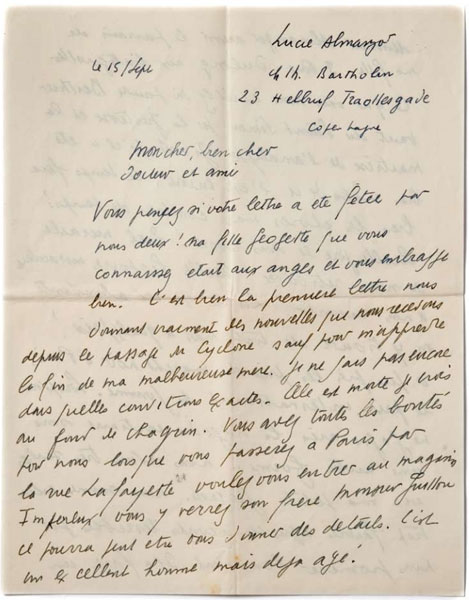 Lucie Almanzor
le 15/Sept
ch Th. Bartholin
23 Helluf Traollesgade
Copenhague
Mon cher, bien cher
Docteur et ami
Vous pensez si votre lettre a ete fêtée par
nous deux! ma fille Georgette que vous
connaissez était aux anges et vous embrasse
bien. C'est bien la première lettre nous
donnant vraiment des nouvelles que nous recevons
depuis le passage du Cyclone sauf pour m'apprendre
la fin de ma malheureuse mere. Je ne sais pas encore
dans quelles conditions exactes. Elle est morte je crois
au fond de chagrin. Vous avez toutes les bontés
por nous lorsque vous passerez a Paris par
la rue Lafayette voulez vous entrer au magasin
Imperlux vous y verrez son frere monsieur
ce pourra peut etre vous donner des details. C'est
un excellent homme mais deja agé.